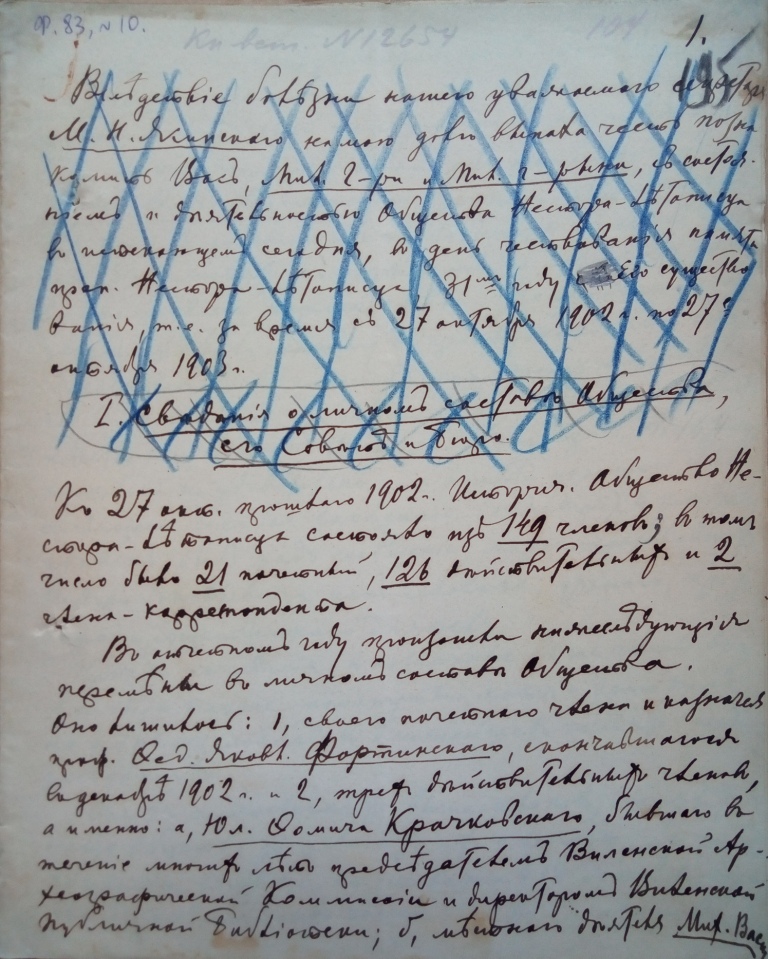 Ф. 83, № 10.
Кн. вст. N 12654
104
1.
195
Вслѣдствіе болѣзни нашего уважаемаго секретаря
М. Н. Ясинскаго на мою долю выпала честь позна-
комить Васъ, Мил. Г-ри и Мил. Г-рыни, съ состоя-
ніемъ и дѣятельностью Общества Нестора-Лѣтописца
въ истекающемъ сегодня, въ день чествованія памяти
преп. Нестора-Лѣтописца, 31мъ году его существо-
ванія, т.е. за время съ 27 октября 1902 г. по 27е
октября 1903 г.
I. Свѣдѣнія о личномъ составѣ Общества,
его Совѣтѣ и Бюро.
Къ 27 окт. прошлаго 1902 г. Историч. Общество Не-
стора-Лѣтописца состояло изъ 149 членовъ; въ томъ
числѣ было 21 почетный, 126 дѣйствительныхъ и 2
члена-корреспондента.
Въ отчетномъ году произошли нижеслѣдующія
перемѣны въ личномъ составѣ Общества.
Оно лишилось: 1, своего почетнаго члена и казначея
проф. Ѳед. Яковл. Фортинскаго, скончавшагося
въ декабрѣ 1902 г. и 2, трехъ дѣйствительныхъ членовъ,
а именно: а, Юл. Ѳомича Крачковскаго, бывшаго въ
теченіе многихъ лѣтъ предсѣдателемъ Виленской Ар-
хеографической Коммиссіи и директоромъ Виленской
Публичной Библіотеки; б, мѣстнаго дѣятеля Мих. Вас.